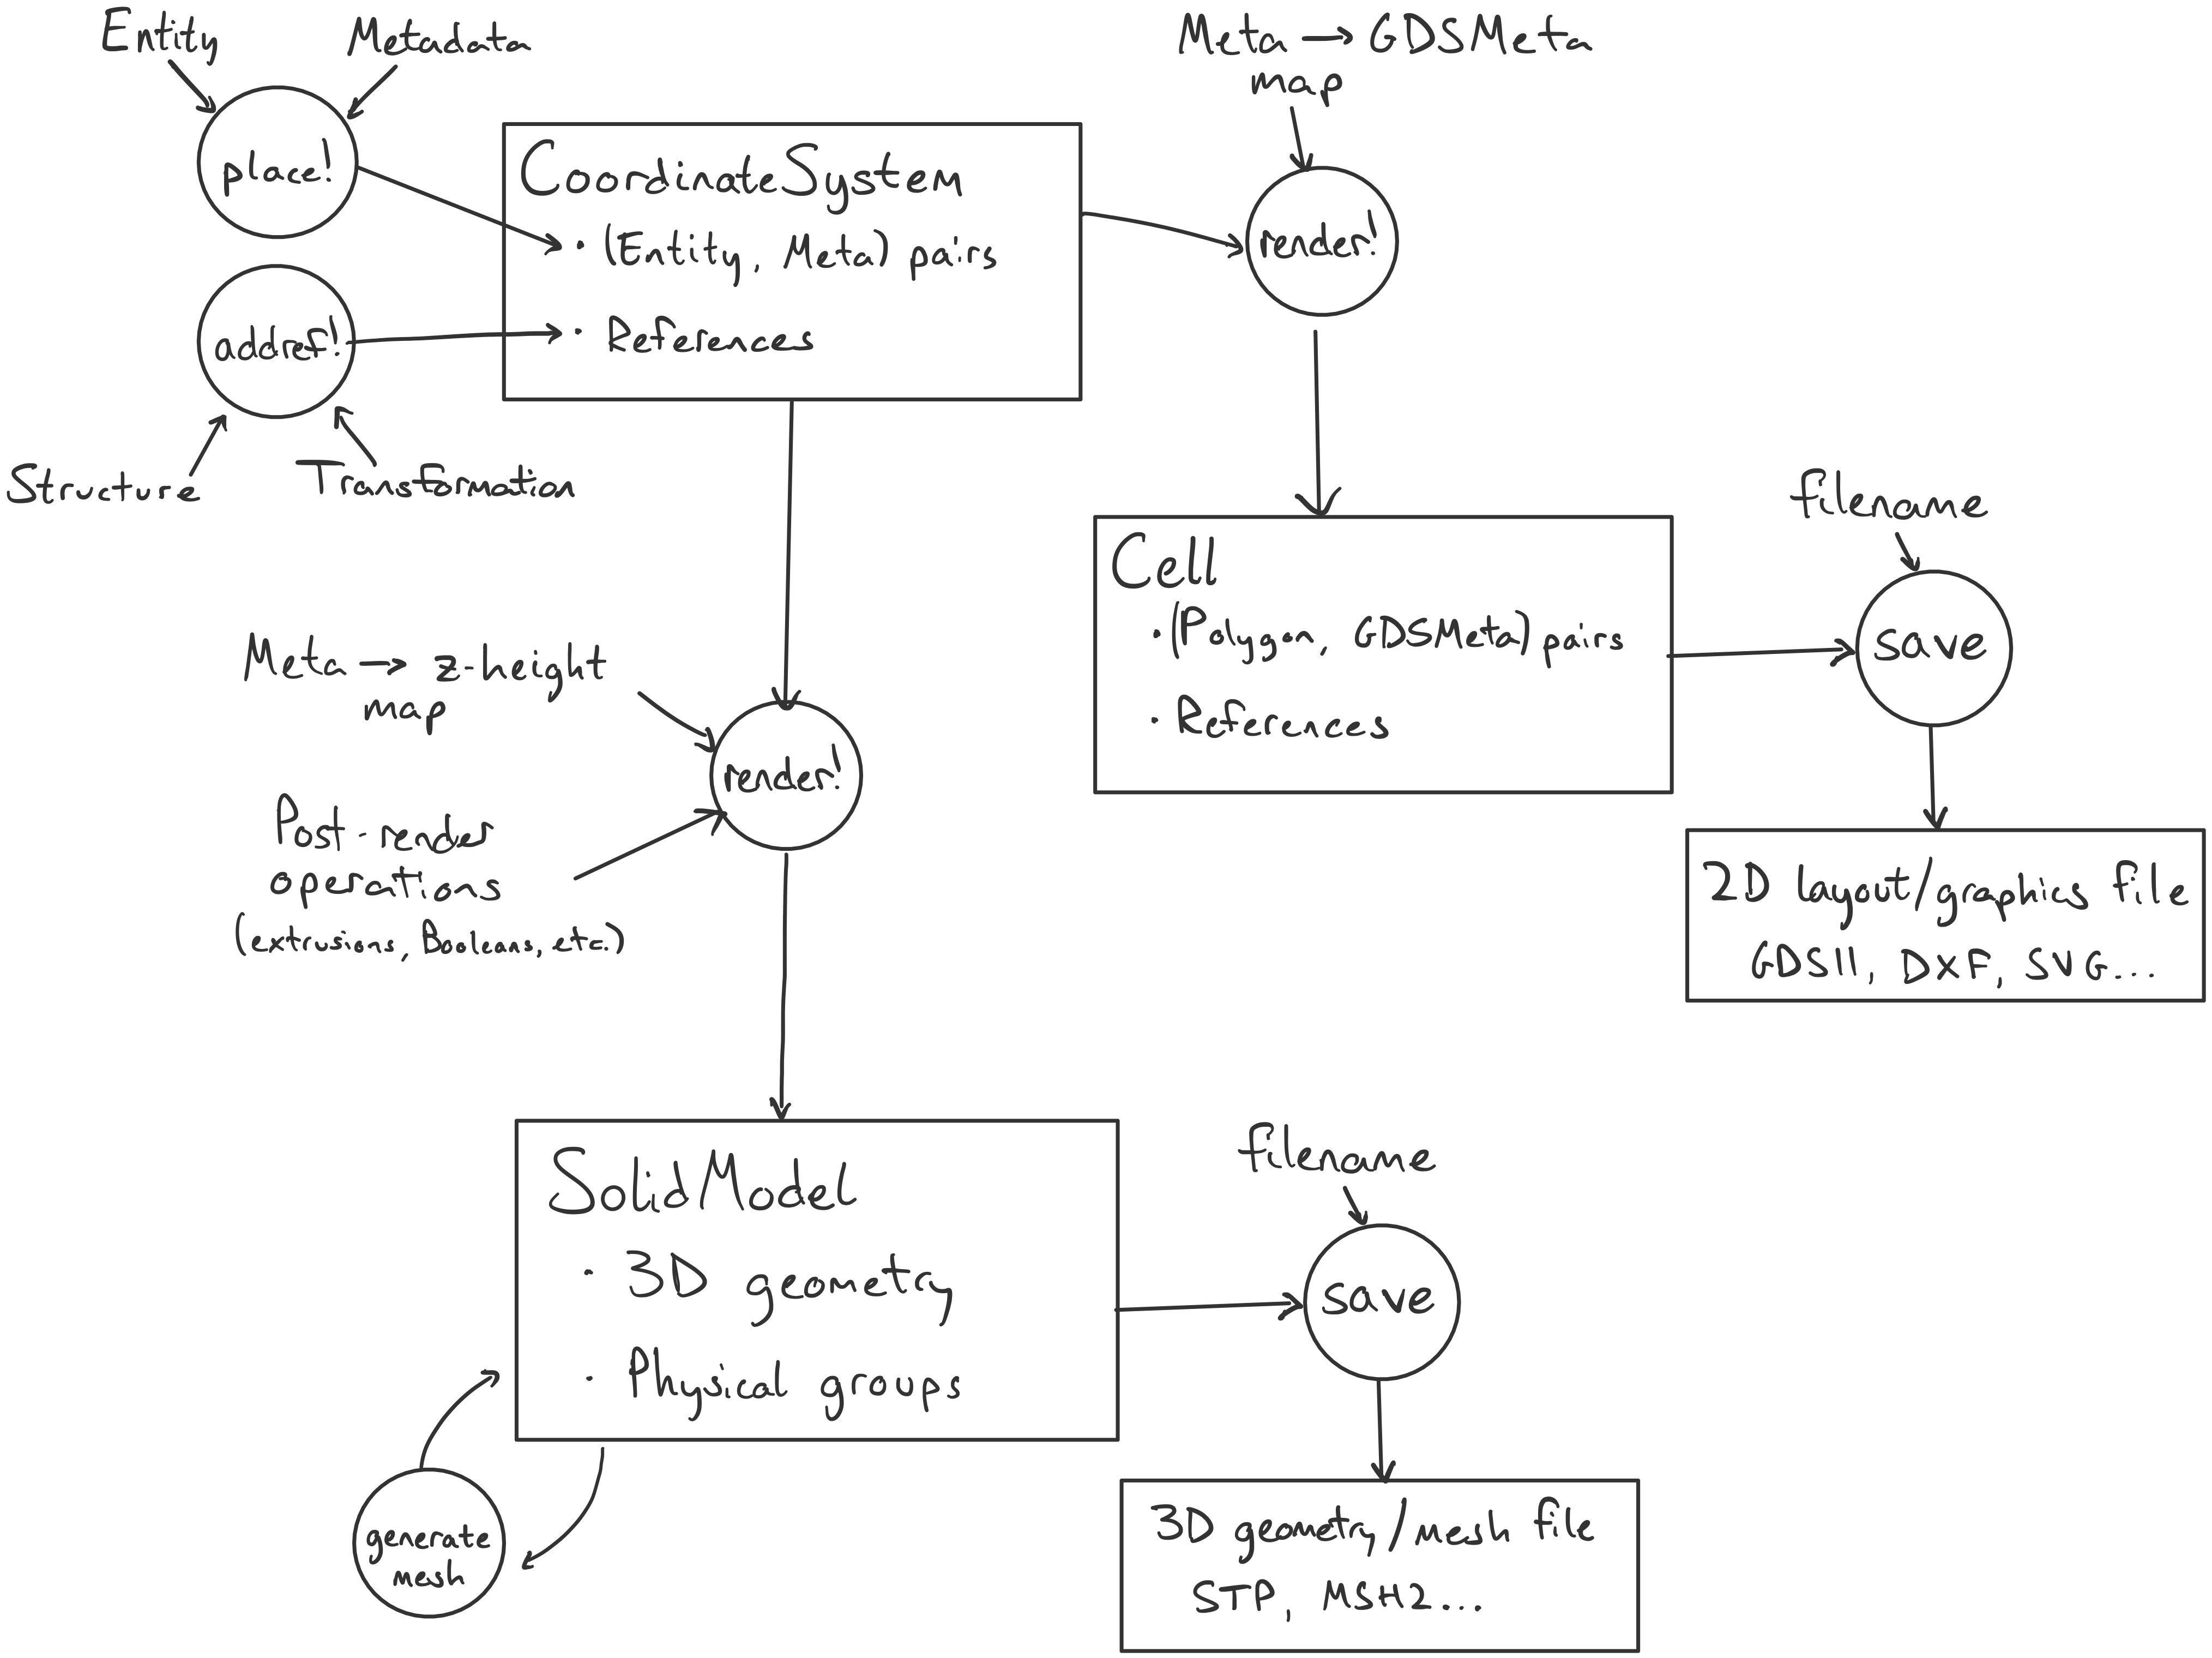 Entity
Metadata
place!
addref!
Structure
Transformation
CoordinateSystem
· (Entity, Meta) pairs
· References
Meta → GDSMeta
map
render!
Cell
· (Polygon, GDSMeta) pairs
· References
filename
save
2D layout/graphics file
GDSII, DXF, SVG...
Meta → z-height
map
Post-render
operations
(extrusions, Booleans, etc.)
render!
SolidModel
· 3D geometry
· Physical groups
generate
mesh
filename
save
3D geometry/mesh file
STP, MSH2...